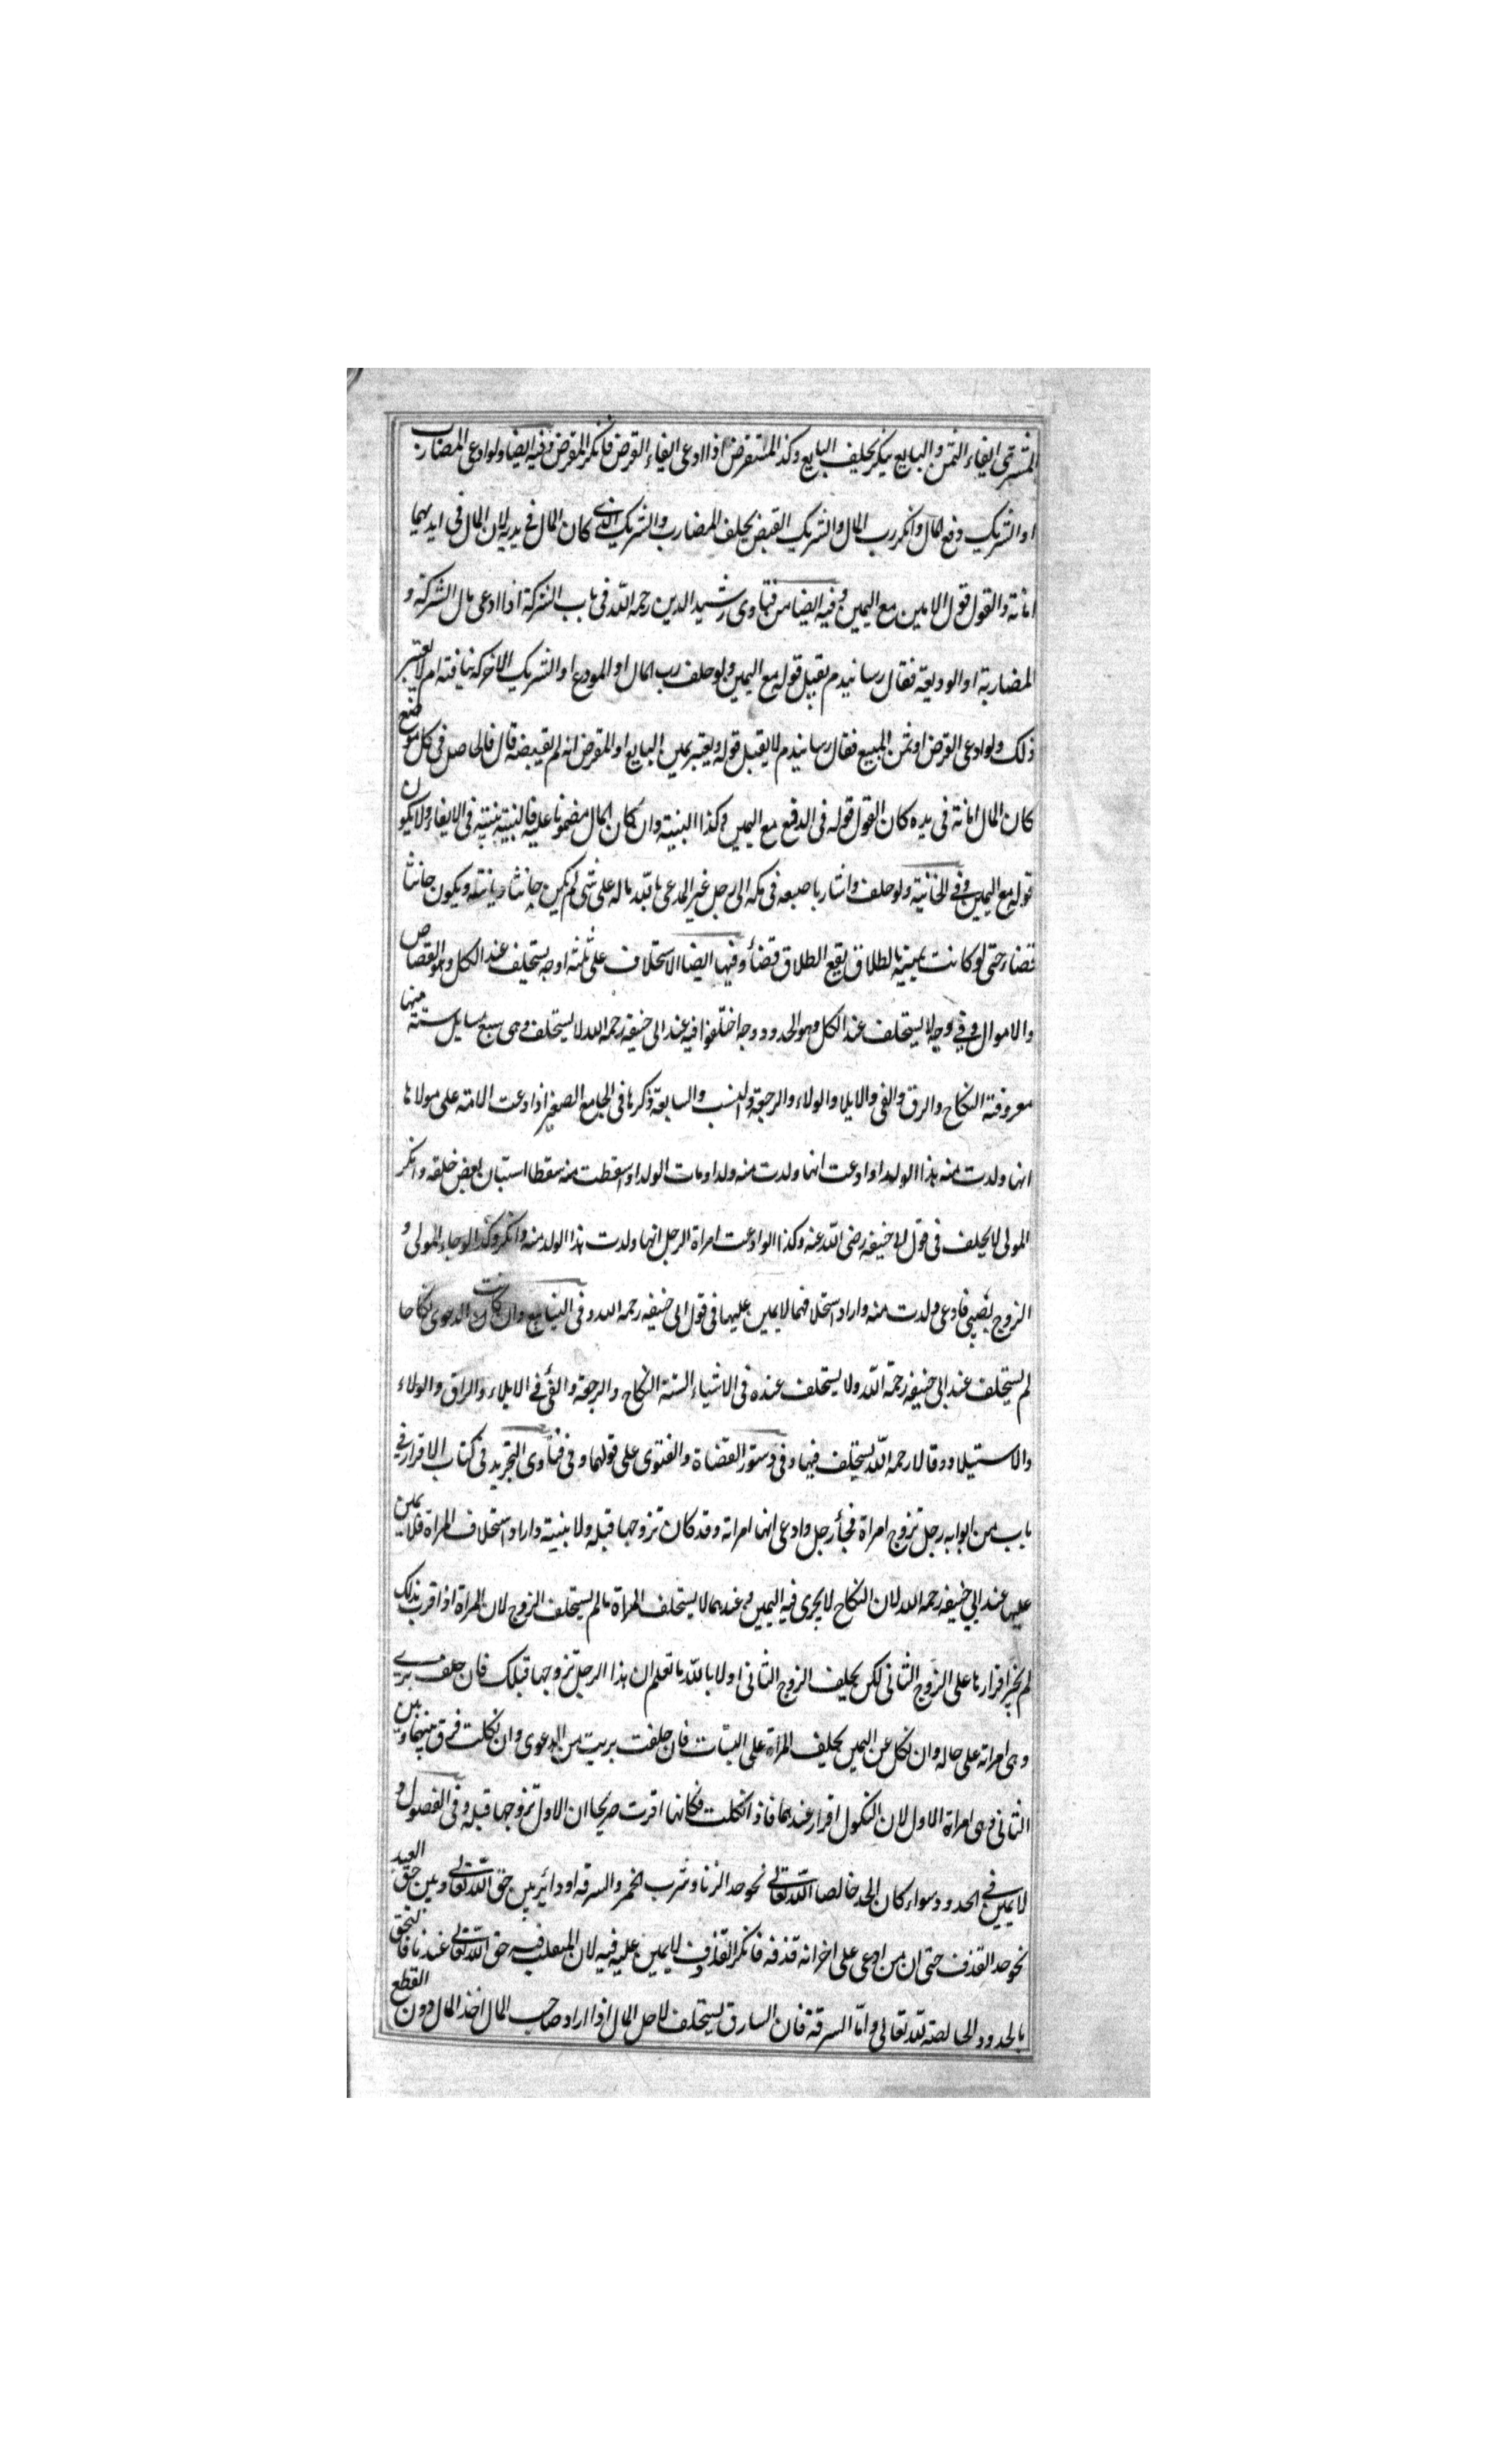 المشترى ايفاء الثمن والبايع ينكر يحلف البايع وكذا المستقرض اذا ادعى ايفاء القرض فانكر المقرض وفيه ايضا ولو ادعى المضارب
او الشريك دفع المال وانكر رب المال والشريك القبض يحلف المضارب والشريك الذى كان المال فى يديه لان المال فى ايديهما
امانة والقول قول الامين مع اليمين وفيه ايضا من فتاوى رشيد الدين رحمه الله فى باب الشركة اذا ادعى مال الشركة و
المضاربة او الوديعة فقال رسانيدم يقبل قوله مع اليمين ولو حلف رب المال او المودع او الشريك الاخر كه نيافته ام لا يعتبر
ذلك ولو ادعى القرض او ثمن المبيع فقال رسانيدم لا يقبل قوله ويعتبر يمين البايع او المقرض انه لم يقبضه قال فالحاصل فى كل موضع
كان المال امانة فى يده كان القول قوله فى الدفع مع اليمين وكذا البينة وان كان المال مضمونا عليه فالبينة بينته فى الايفاء ولا يكون
قوله مع اليمين وفى الخانية ولو حلف واشار باصبعه فى كمه الى رجل غير المدعى بالله ماله على شئ لم يكن حانثا ديانة ويكون حانثا
قضاء حتى لو كانت يمينه بالطلاق يقع الطلاق قضأ وفيها ايضا الاستحلاف على ثلثة اوجه يستحلف عند الكل وهو القصاص
والاموال وفى وجه لا يستحلف عند الكل وهو الحدود ووجه اختلفوا فيه عند ابى حنيفه رحمه الله لا يستحلف وهى سبع مسايل ستة منها
معروفة النكاح والرق والفى والايلا والولاء والرجعة والنسب والسابعة ذكرها فى الجامع الصغير اذا ادعت الامة على مولاها
انها ولدت منه هذا الولد او ادعت انها ولدت منه ولدا ومات الولد او اسقطت منه سقطا استبان بعض خلقه وانكر
المولى لا يحلف فى قول ابى حنيفه رضى الله عنه وكذا لو ادعت امراة الرجل انها ولدت هذا الولد منه وانكر وكذا لو جاء المولى و
الزوج بصبى فادعى ولدت منه واراد استحلافها لا يمين عليها فى قول ابى حنيفه رحمه الله وفى الينابيع وان كانت الدعوى نكاحا
لم يستحلف عند ابى حنيفه رحمة الله ولا يستحلف عنده فى الاشياء الستة النكاح والرجعة والفئ فى الايلاء والراق والولاء
والاستيلاد وقالا رحمه الله يستحلف فيها وفى دستور القضاة والفتوى على قولهما وفى فتاوى التجريد فى كتاب الاقرار فى
باب من ابوابه رجل تزوج امراة فجأ رجل وادعى انها امراته وقد كان تزوجها قبله ولا بينة واراد استحلاف المراة فلا يمين
عليها عند ابي حنيفه رحمه الله لان النكاح لا يجرى فيه اليمين وعندهما لا يستحلف المراة ما لم يستحلف الزوج لان المراة اذا قرب بذلك
لم يجز اقرارها على الزوج الثانى لكن يحلف الزوج الثانى اولا بالله ما تعلم ان هذا الرجل تزوجها قبلك فان حلف برى
وهى امراته على حاله وان نكل عن اليمين يحلف المراة على البتات فان حلفت بريت من الدعوى وان نكلت فرق بينهما وبين
الثانى وهى امراة الاول لان النكول اقرار عندهما فاذا نكلت فكانها اقرت صريحا ان الاول تزوجها قبله وفى الفصول و
لا يمين فى الحدود سواء كان الحد خالصا الله تعالى نحو حد الزنا وشرب الخمر والسرقه او دائر بين حق الله تعالى وبين حق العبد
نحو حد القذف حتى ان من ادعى على اخر انه قذفه فانكر القذف لا يمين عليه فيه لان المغلب فيه حق الله تعالى عندنا فالتحق
بالحدود الخالصة لله تعالى واما السرقة فان السارق يستحلف لاجل المال اذا اراد صاحب المال اخذ المال دون القطع